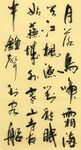 月落烏啼霜滿
天江楓漁火對愁
眠姑蘇城外寒山寺夜
半鐘聲到客船